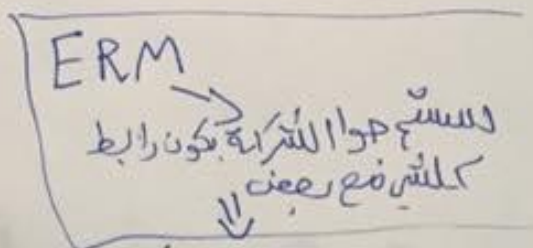 ERM
سستم جوا الشركة يكون رابط
كلشي مع بعض